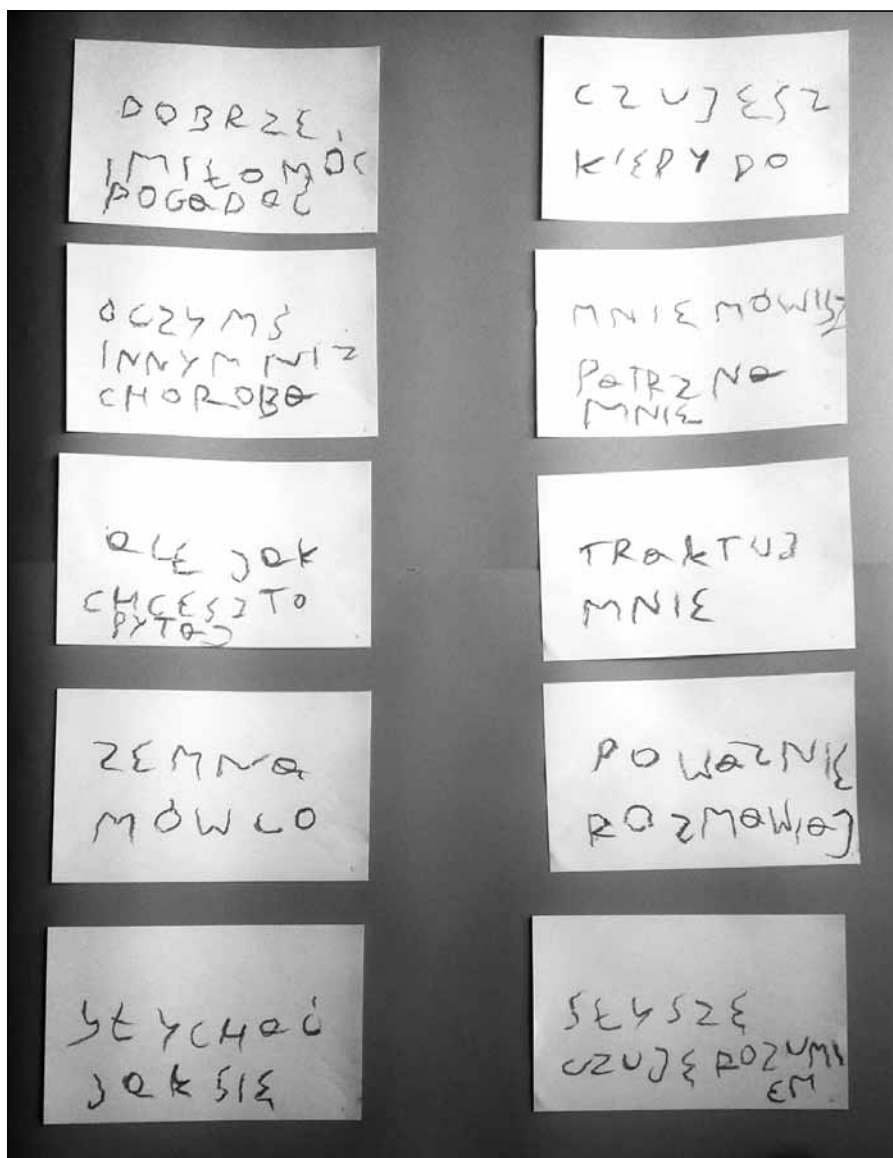 DOBRZE,
I MIŁO MÓC
POGADAĆ
O CZYMŚ
INNYM NIZ
CHOROBA
ALE JAK
CHCESZ TO
PYTAJ
ZEMNĄ
MÓW CO
SŁYCHAĆ
JAK SIĘ
CZUJESZ
KIEDY DO
MNIE MÓWISZ
PATRZ NA
MNIE
TRAKTUJ
MNIE
POWAŻNIE
ROZMAWIAJ
SŁYSZĘ
CZUJĘ ROZUMI
EM